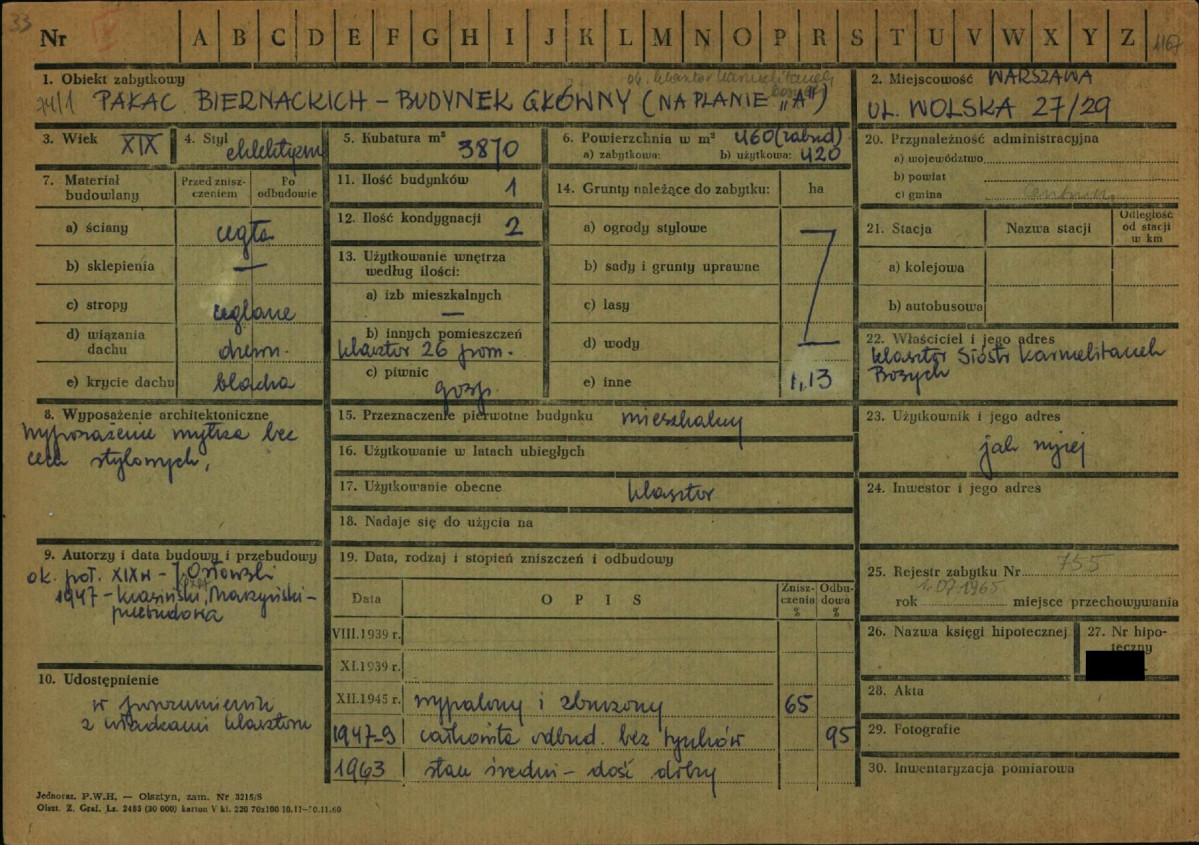 33
Nr A B C D E F G H I J K L M N O P R S T U V W X Y Z 1167
1. Obiekt zabytkowy
ob. klasztor karmelitanek
bosych
24/1 PAŁAC BIERNACKICH – BUDYNEK GŁÓWNY (NA PLANIE „A")
2. Miejscowość WARSZAWA
UL. WOLSKA 27/29
3. Wiek XIX
4. Styl eklektyzm
5. Kubatura m³ 3870
6. Powierzchnia w m² 460 (zabud)
a) zabytkowa: b) użytkowa: 420
7. Materiał budowlany
Przed zniszczeniem
Po odbudowie
a) ściany cegła
b) sklepienia —
c) stropy ceglane
d) wiązania dachu drewn.
e) krycie dachu blacha
8. Wyposażenie architektoniczne
wyposażenie wnętrza bez
cech stylowych,
9. Autorzy i data budowy i przebudowy
ok. poł. XIX w – J. Orłowski
1947 – Krasiński, Marzyński –
przebudowa
10. Udostępnienie
w porozumieniu
z władzami klasztoru
11. Ilość budynków 1
12. Ilość kondygnacji 2
13. Użytkowanie wnętrza
według ilości:
a) izb mieszkalnych
—
b) innych pomieszczeń
klasztor 26 pom.
c) piwnic
gosp.
14. Grunty należące do zabytku: ha
a) ogrody stylowe
b) sady i grunty uprawne
c) lasy
d) wody
e) inne 1,13
15. Przeznaczenie pierwotne budynku mieszkalny
16. Użytkowanie w latach ubiegłych
17. Użytkowanie obecne klasztor
18. Nadaje się do użycia na
19. Data, rodzaj i stopień zniszczeń i odbudowy
Data OPIS Zniszczenia % Odbudowa %
VIII.1939 r.
XI.1939 r.
XII.1945 r. wypalony i zburzony 65
1947-9 całkowita odbud. bez tynków 95
1963 stan średni – dość dobry
20. Przynależność administracyjna
a) województwo
b) powiat
c) gmina
21. Stacja Nazwa stacji Odległość od stacji w km
a) kolejowa
b) autobusowa
22. Właściciel i jego adres
klasztor Sióstr Karmelitanek
Bosych
23. Użytkownik i jego adres
jak wyżej
24. Inwestor i jego adres
25. Rejestr zabytku Nr 755
1.07.1965
rok miejsce przechowywania
26. Nazwa księgi hipotecznej
27. Nr hipoteczny
28. Akta
29. Fotografie
30. Inwentaryzacja pomiarowa
Jednoraz. P.W.H. — Olsztyn, zam. Nr 3215/S
Olszt. Z. Graf. Lz. 2483 (30 000) karton V kl. 220 70x100 10.11–20.11.60